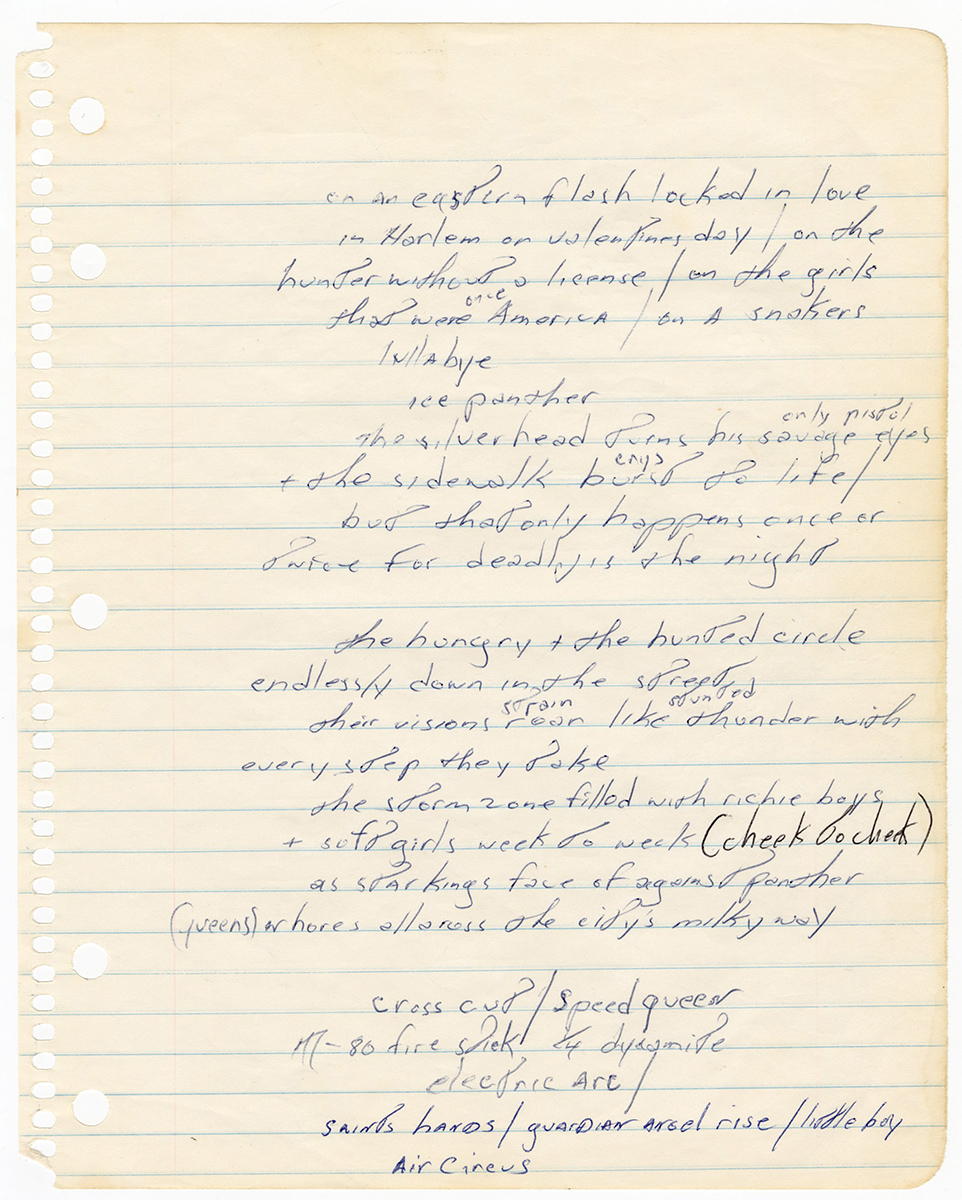 on an eastern flash locked in love
in Harlem on valentines day / on the
hunter without a license / on the girls
once
that were America / on A snakers
lullabye
ice panther
only pistol
the silverhead turns his savage eyes
crys
+ the sidewalk burst to life /
but that only happens once or
twice for deadly is the night
the hungry + the hunted circle
endlessly down in the street
strain stunted
their visions roar like thunder with
every step they take
the storm zone filled with richie boys
+ soft girls week to week (cheek to cheek)
as starkings face of against panther
(queens) whores all across the city's milky way
cross cut / speed queen
M-80 fire stick 1/4 dynamite
electric Arc /
saints hands / guardian angel rise / little boy
Air Circus